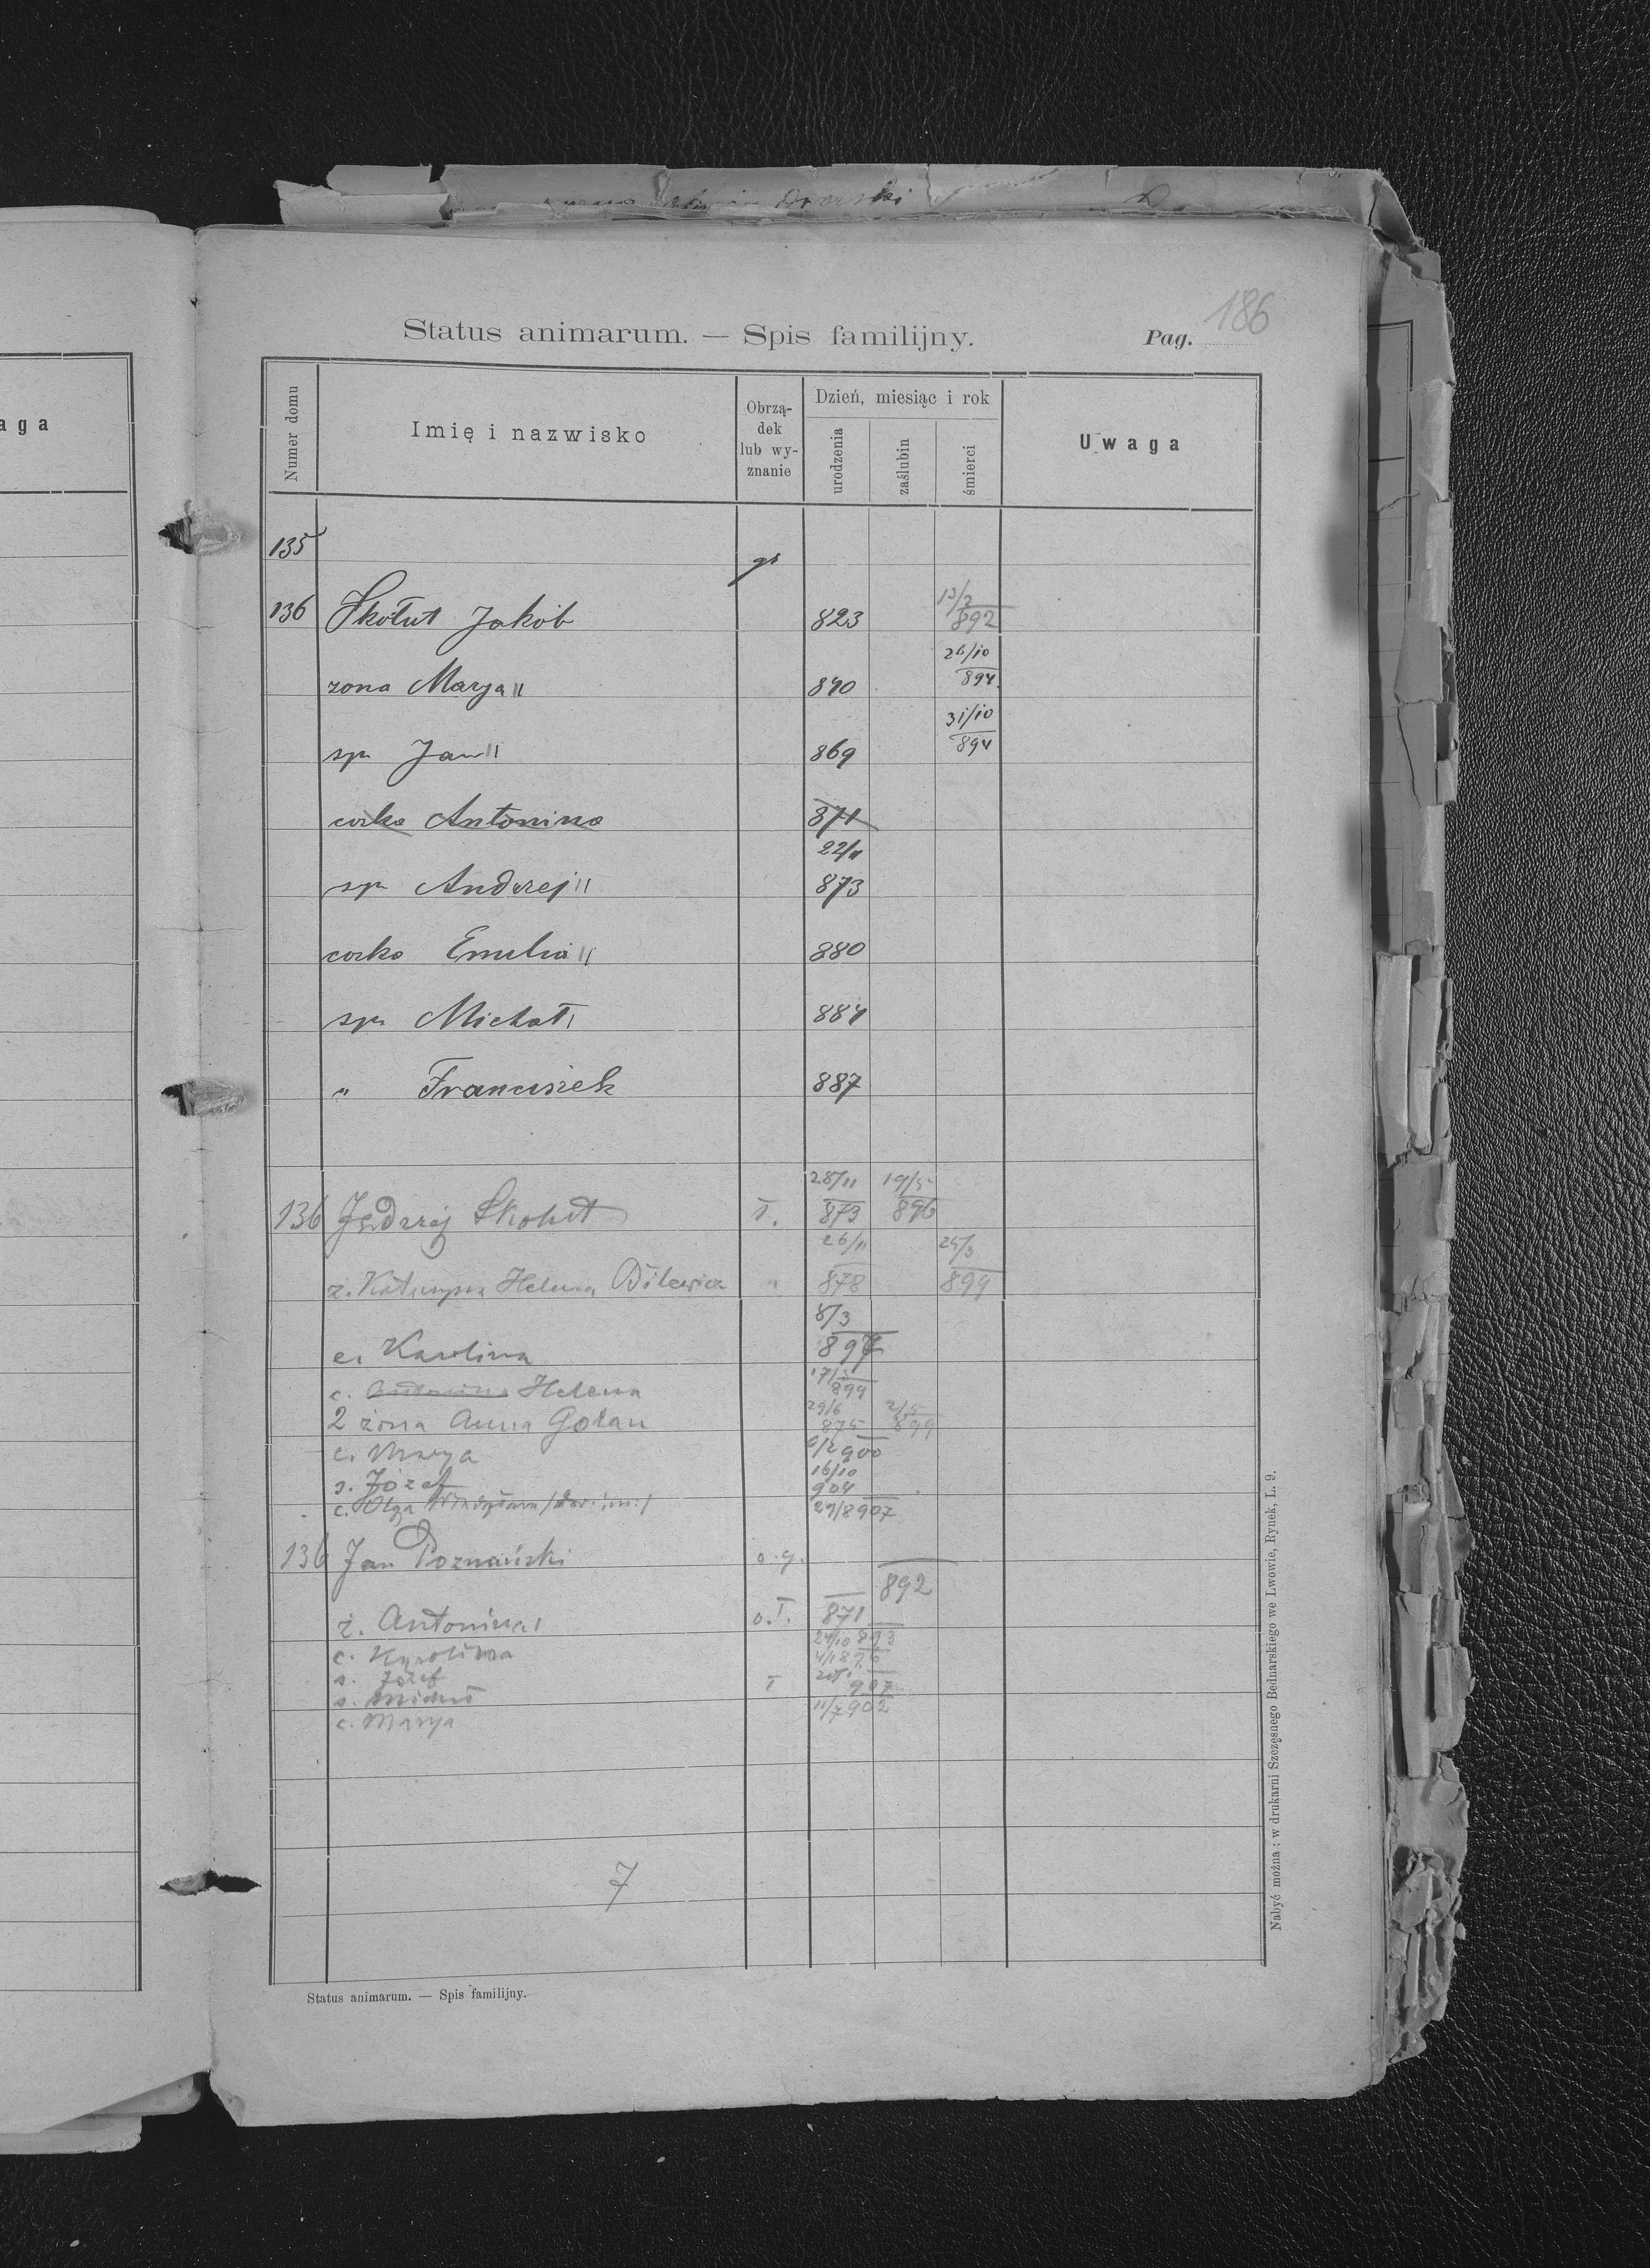 aga
Status animarum. — Spis familijny.
Pag. 186
Numer domu
Imię i nazwisko
Obrzą-
dek
lub wy-
znanie
Dzień, miesiąc i rok
urodzenia
zaślubin
śmierci
Uwaga
135
gr
136 Skołut Jakób 823 13/2 892
zona Marya 840 26/10 894
syn Jan 869 31/10 894
corka Antonina 871
syn Andrzej 22/11 873
corka Emilia 880
syn Michał 884
" Franciszek 887
136 Jędrzej Skołut ł. 28/11 873 19/5 896
ż. Katarzyna Helena " 26/11 878 25/3 899
c. Karolina 8/3 897
c. Antonina Helena 17/ 899
2 żona Anna Golan 29/6 875 2/5 899
c. Marya 6/2 900
s. Józef 16/10 904
c. Olga 29/8 907
136 Jan Poznański o. g. 892
ż. Antonina o. ł. 871
c. Karolina 24/10 893
s. Józef
s.
c. Marya 11/7 902
7
Status animarum. — Spis familijny.
Nabyć można: w drukarni Szczęsnego Bednarskiego we Lwowie, Rynek, L. 9.